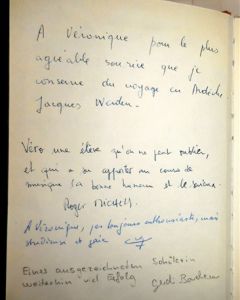 A Véronique pour le plus
agréable sourire que je
conserve du voyage en Ardèche
Jacques
Véro une élève qu'on ne peut oublier,
et qui a su apporter au cours de
musique sa bonne humeur et le sourire.
Roger
A Véronique, pas toujours enthousiaste, mais
studieuse et gaie
Einer ausgezeichneten Schülerin
weiterhin viel Erfolg